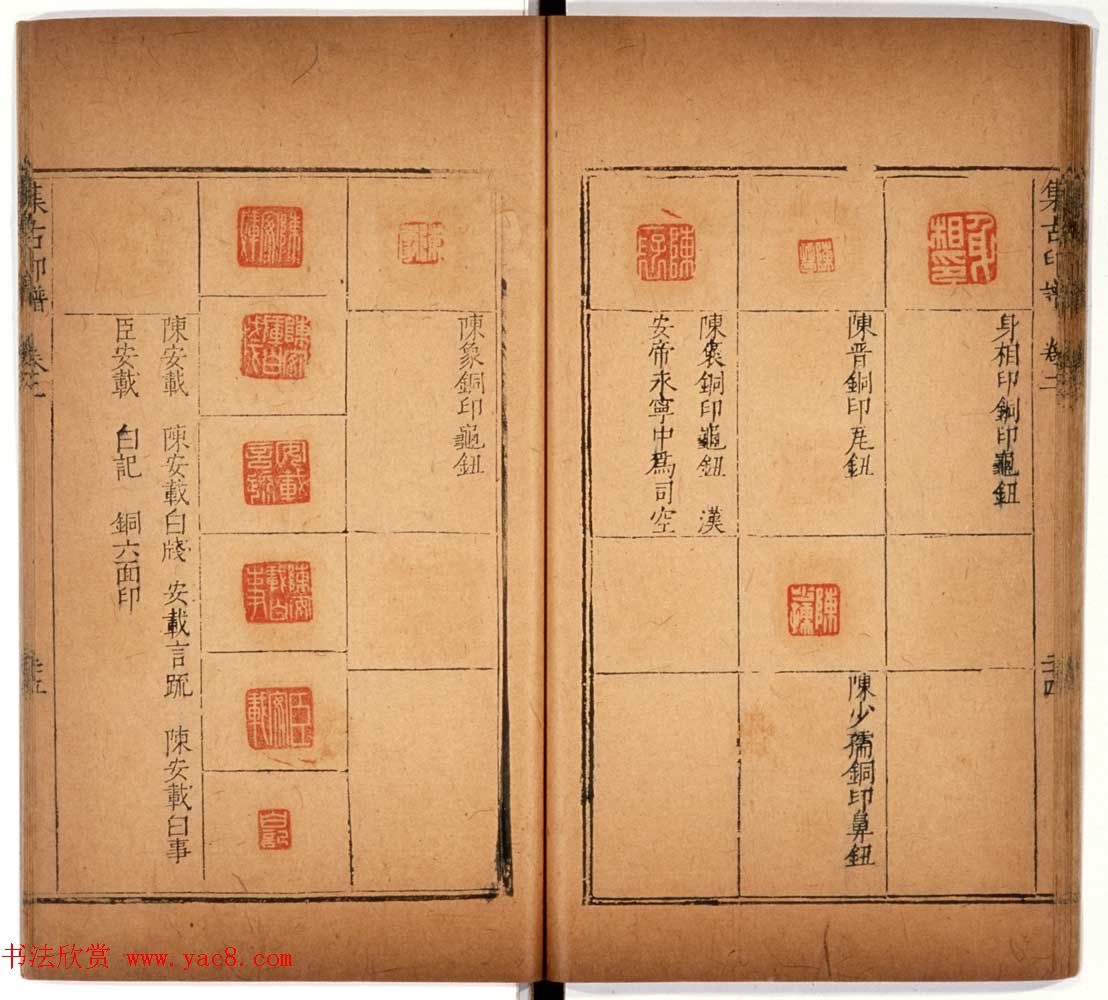 集古印譜 卷二
二十四
身相印銅印龜鈕
陳晋銅印瓦鈕
陳少孺銅印鼻鈕
陳裦銅印龜鈕 漢
安帝永寧中爲司空
陳象銅印龜鈕
陳安載 陳安載白牋 安載言疏 陳安載白事
臣安載 白記 銅六面印
集古印譜
书法欣赏 www.yac8.com